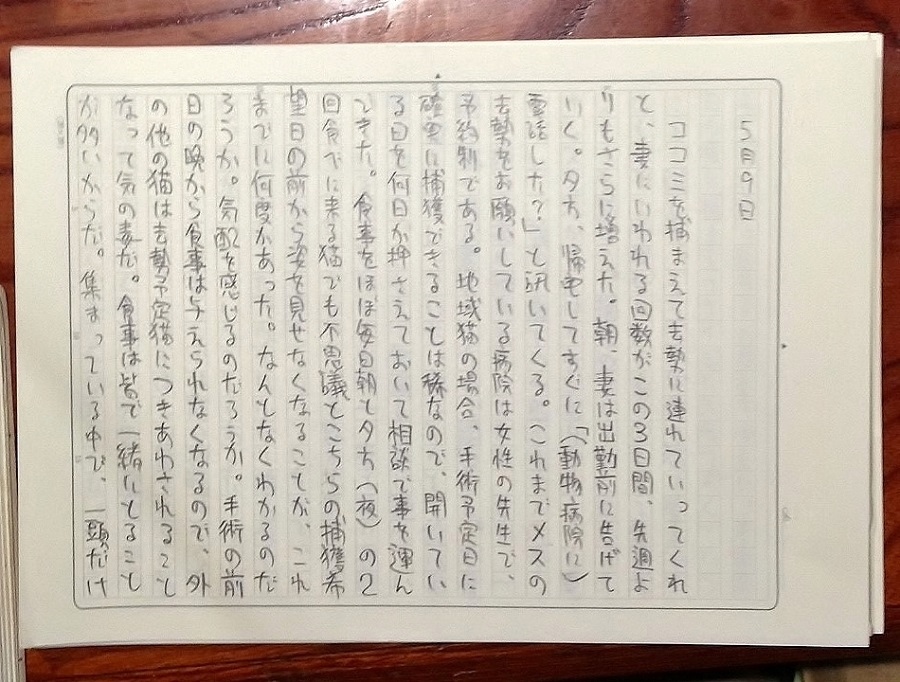 5月9日
ココミを捕まえて去勢に連れていってくれ
と、妻にいわれる回数がこの3日間、先週よ
りもさらに増えた。朝、妻は出勤前に告げて
いく。夕方、帰宅してすぐに「(動物病院に)
電話した?」と訊いてくる。これまでメスの
去勢をお願いしている病院は女性の先生で、
予約制である。地域猫の場合、手術予定日に
確実に捕獲できることは稀なので、開いてい
る日を何日か押さえておいて相談で事を運ん
できた。食事をほぼ毎日朝と夕方(夜)の2
回食べに来る猫でも不思議とこちらの捕獲希
望日の前から姿を見せなくなることが、これ
までに何度かあった。なんとなくわかるのだ
ろうか。気配を感じるのだろうか。手術の前
日の晩から食事は与えられなくなるので、外
の他の猫は去勢予定猫につきあわされること
なって気の毒だ。食事は皆で一緒にとること
が多いからだ。集まっている中で、一頭だけ